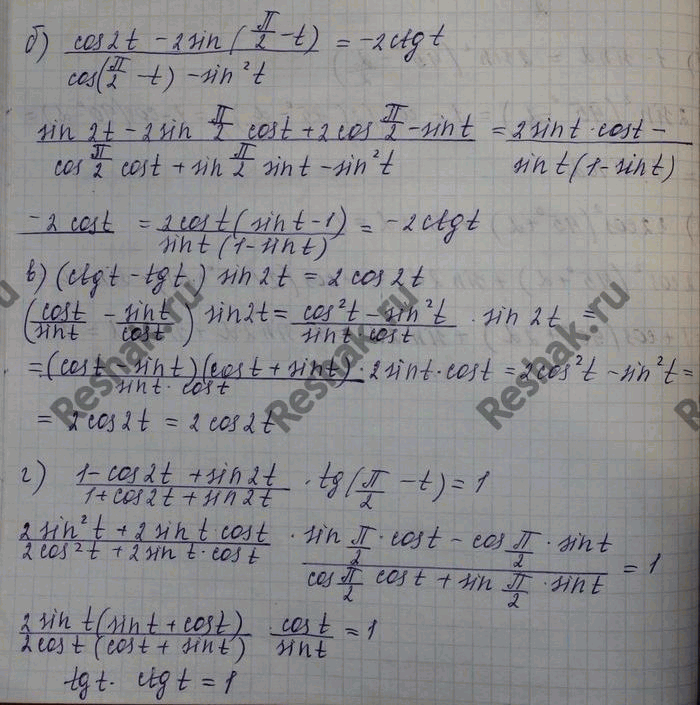 б) (cos2t - 2sin(π/2 - t)) / (cos(π/2 - t) - sin²t) = -2ctg t
(sin 2t - 2sin π/2 cost + 2cos π/2 - sint) / (cos π/2 cost + sin π/2 sint - sin²t) = (2sint·cost - / sint(1-sint)
-2cost = (2cost(sint-1)) / (sint(1-sint)) = -2ctgt
в) (ctgt - tgt) sin2t = 2cos2t
(cost/sint - sint/cost) sin2t = (cos²t - sin²t) / (sint·cost) · sin 2t =
= ((cost - sint)(cost + sint)) / (sint·cost) · 2sint·cost = 2cos²t - sin²t =
= 2cos2t = 2cos2t
г) (1-cos2t + sin2t) / (1+cos2t + sin2t) · tg(π/2 - t) = 1
(2sin²t + 2sint·cost) / (2cos²t + 2sint·cost) · (sin π/2 · cost - cos π/2 · sint) / (cos π/2 cost + sin π/2 · sint) = 1
(2sint(sint + cost)) / (2cost(cost + sint)) · cost/sint = 1
tgt · ctgt = 1
Reshak.ru
Reshak.ru